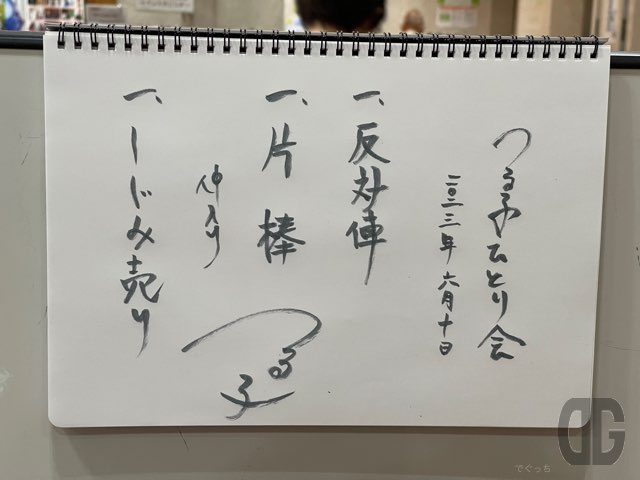 つる子ひとり会
二〇二三年 六月十日
一、反対俥
一、片棒
仲入り
一、しじみ売り
つる子
でぐっち
DG